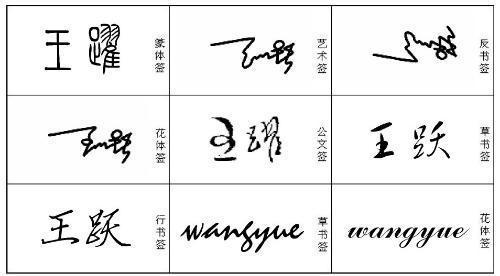 王躍
篆体签
艺术签
反书签
花体签
王躍
公文签
王跃
草书签
王跃
行书签
wangyue
草书签
wangyue
花体签